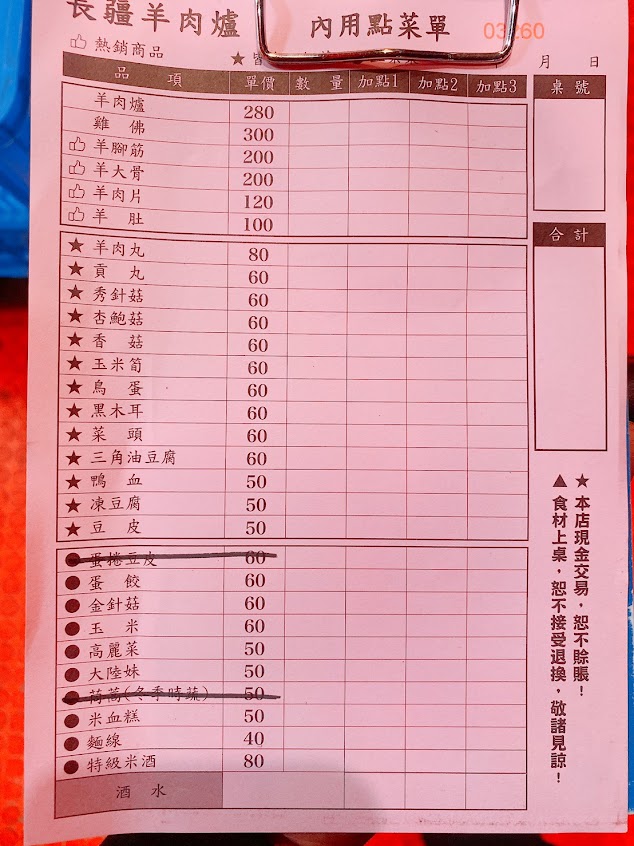 長疆羊肉爐
內用點菜單
03260
熱銷商品
月 日
品 項 單價 數量 加點1 加點2 加點3 桌號
羊肉爐 280
雞 佛 300
羊腳筋 200
羊大骨 200
羊肉片 120
羊 肚 100
合計
★ 羊肉丸 80
★ 貢 丸 60
★ 秀針菇 60
★ 杏鮑菇 60
★ 香 菇 60
★ 玉米筍 60
★ 鳥 蛋 60
★ 黑木耳 60
★ 菜 頭 60
★ 三角油豆腐 60
★ 鴨 血 50
★ 凍豆腐 50
★ 豆 皮 50
● 蛋捲豆皮 60
● 蛋 餃 60
● 金針菇 60
● 玉 米 60
● 高麗菜 50
● 大陸妹 50
● 茼蒿(冬季時蔬) 50
● 米血糕 50
● 麵線 40
● 特級米酒 80
酒 水
★ 本店現金交易，恕不賒賬！
▲ 食材上桌，恕不接受退換，敬請見諒！